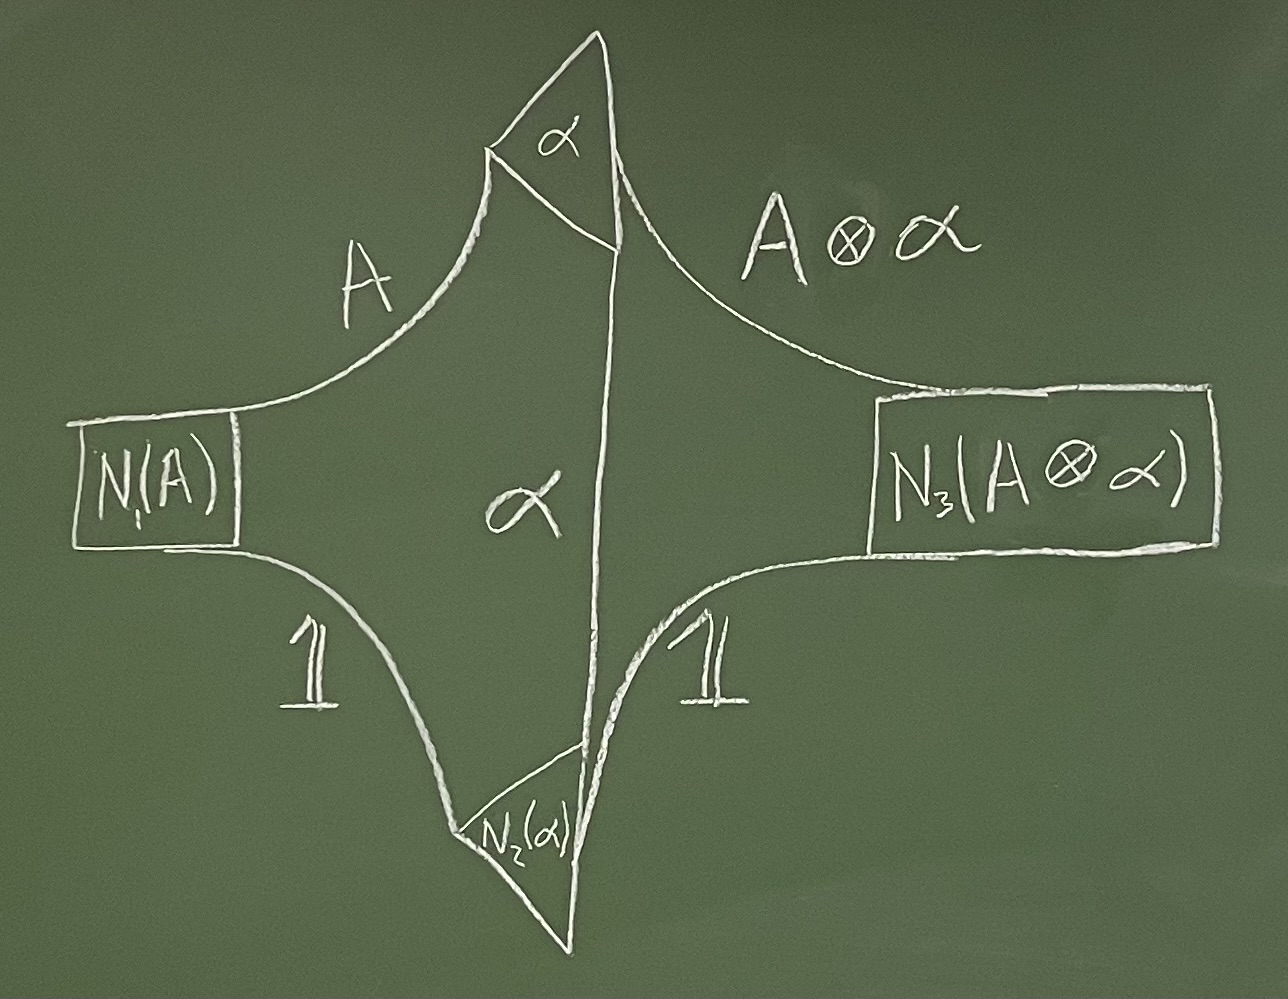 α
A
A ⊗ α
N₁(A)
α
N₃(A ⊗ α)
𝟙
𝟙
N₂(α)